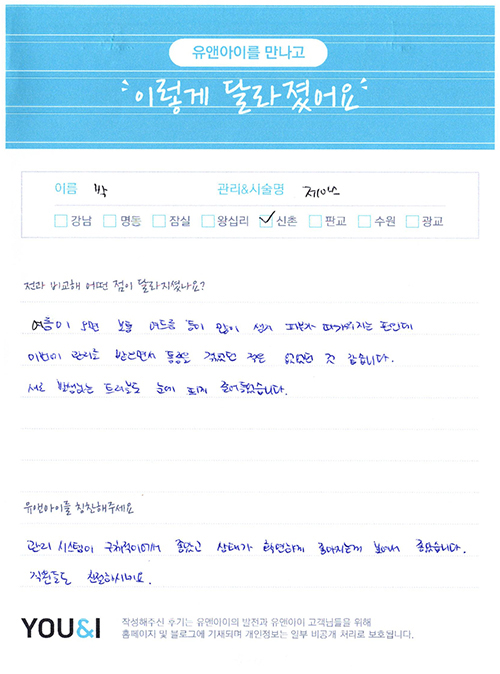 유앤아이를 만나고
이렇게 달라졌어요
이름 박 관리&시술명 제네시스
강남 명동 잠실 왕십리 ✓신촌 판교 수원 광교
전과 비교해 어떤 점이 달라지셨나요?
여름이 오면 보통 여드름 등이 많이 생겨 피부가 따가워지는 편인데
이번에 관리를 받으면서 통증은 겪었던 적은 없었던 것 같습니다.
새로 발생하는 트러블도 눈에 띄게 줄어들었습니다.
유앤아이를 칭찬해주세요
관리 시스템이 구체적이어서 좋았고 상태가 확연하게 좋아지는게 보여서 좋았습니다.
직원들도 친절하시네요.
YOU&I
작성해주신 후기는 유앤아이의 발전과 유앤아이 고객님들을 위해
홈페이지 및 블로그에 기재되며 개인정보는 일부 비공개 처리로 보호됩니다.